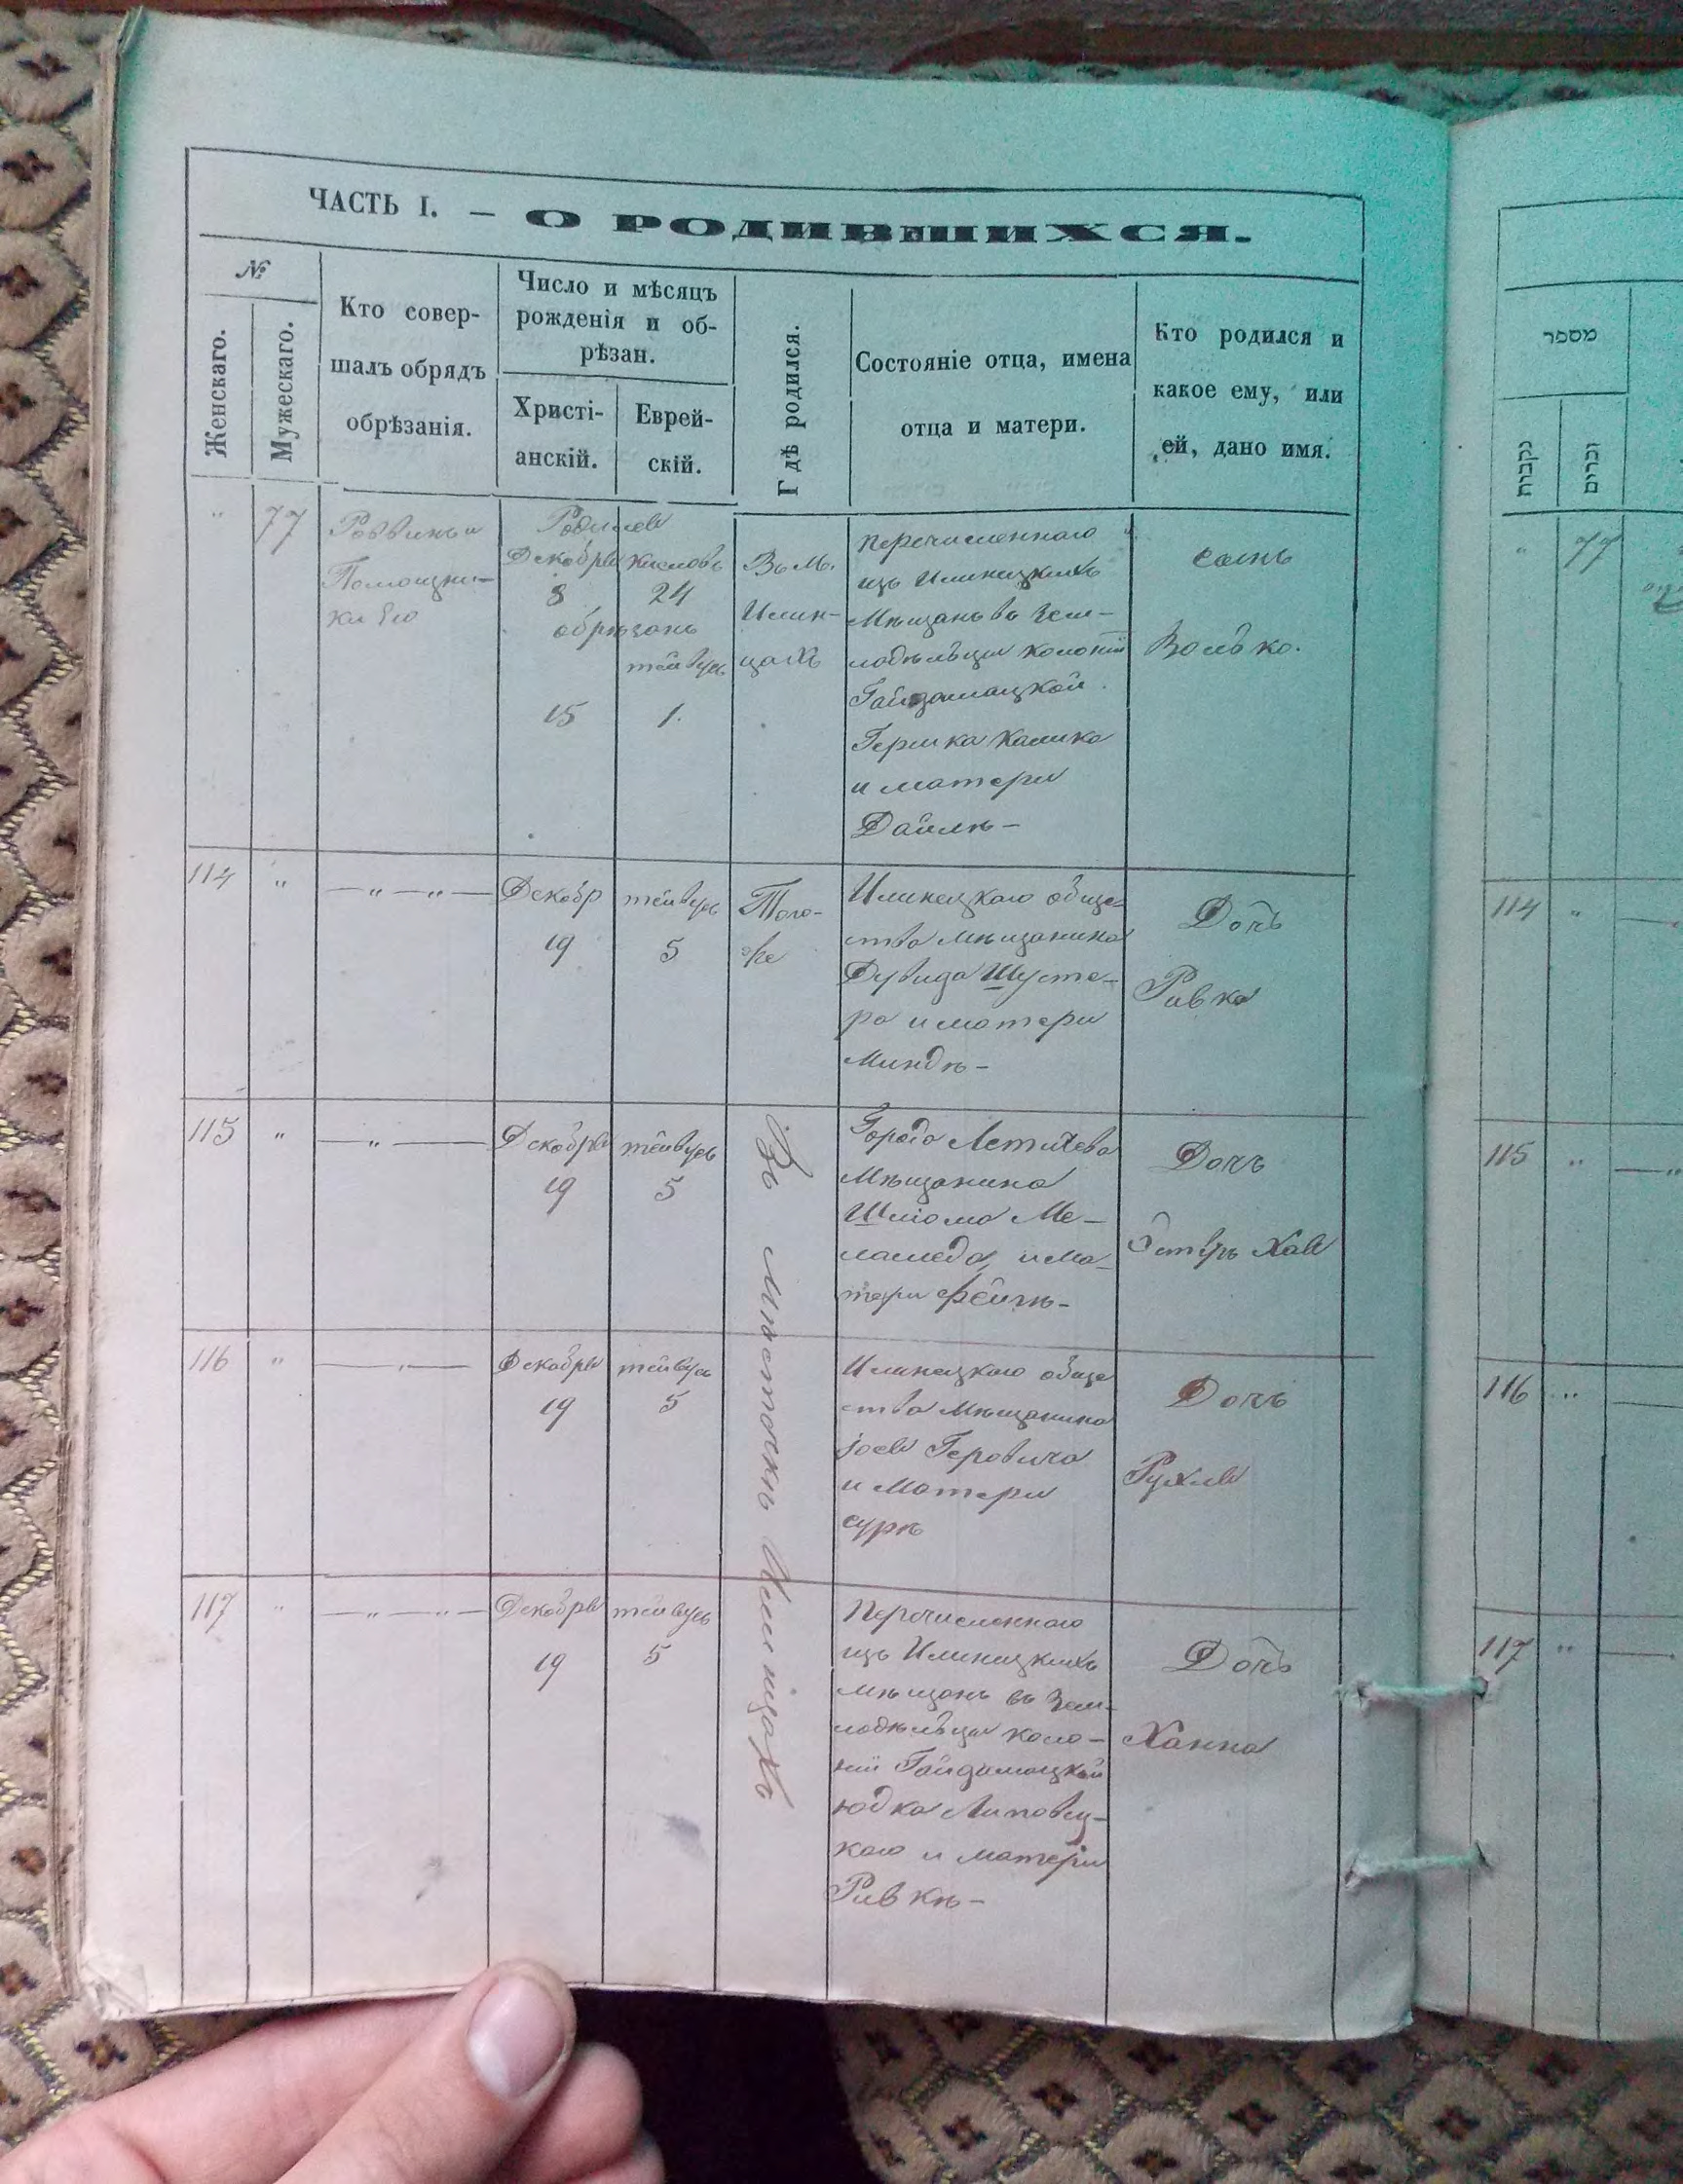 ЧАСТЬ I. — О РОДИВШИХСЯ.
№
Женскаго.
Мужескаго.
Кто совер-
шалъ обрядъ
обрѣзанія.
Число и мѣсяцъ
рожденія и об-
рѣзан.
Христі-
анскій.
Еврей-
скій.
Гдѣ родился.
Состояніе отца, имена
отца и матери.
Кто родился и
какое ему, или
ей, дано имя.
" 77
Раввинъ и
Помощни-
къ Его
Родился
Декабря Кислевъ
8 24
обрѣзанъ
тейвусъ
15 1.
Въ М.
Илин-
цахъ
перечисленнаго
изъ Илинецкихъ
Мѣщанъ въ Зем-
ледѣльцы колоніи
Гайдамацкой
Гершка
и матери
сынъ
Волько.
114 " — " — " —
Декабр тейвусъ
19 5
Того-
же
Илинецкаго обще-
ства мѣщанина
Дувида Шусте-
ра и матери
Миндѣ —
Дочь
Ривка
115 " — " —
Декабря тейвусъ
19 5
Въ мѣстечкѣ Илинцахъ
Города Летичева
Мѣщанина
Шліома Ме-
ламеда, и ма-
тери Фейгѣ —
Дочь
Хая
116 " — " —
Декабря тейвусъ
19 5
Илинецкаго обще
ства Мѣщанина
Геровича
и Матери
Сурѣ
Дочь
Рухля
117 " — " — " —
Декабря тейвусъ
19 5
Перечисленнаго
изъ Илинецкихъ
мѣщанъ въ Зем-
ледѣльцы коло-
ніи Гайдамацкой
Юдка Липовец-
каго и матери
Ривкѣ —
Дочь
Ханна
מספר
נקבות
זכרים
" 77
114 "
115 "
116 "
117 "